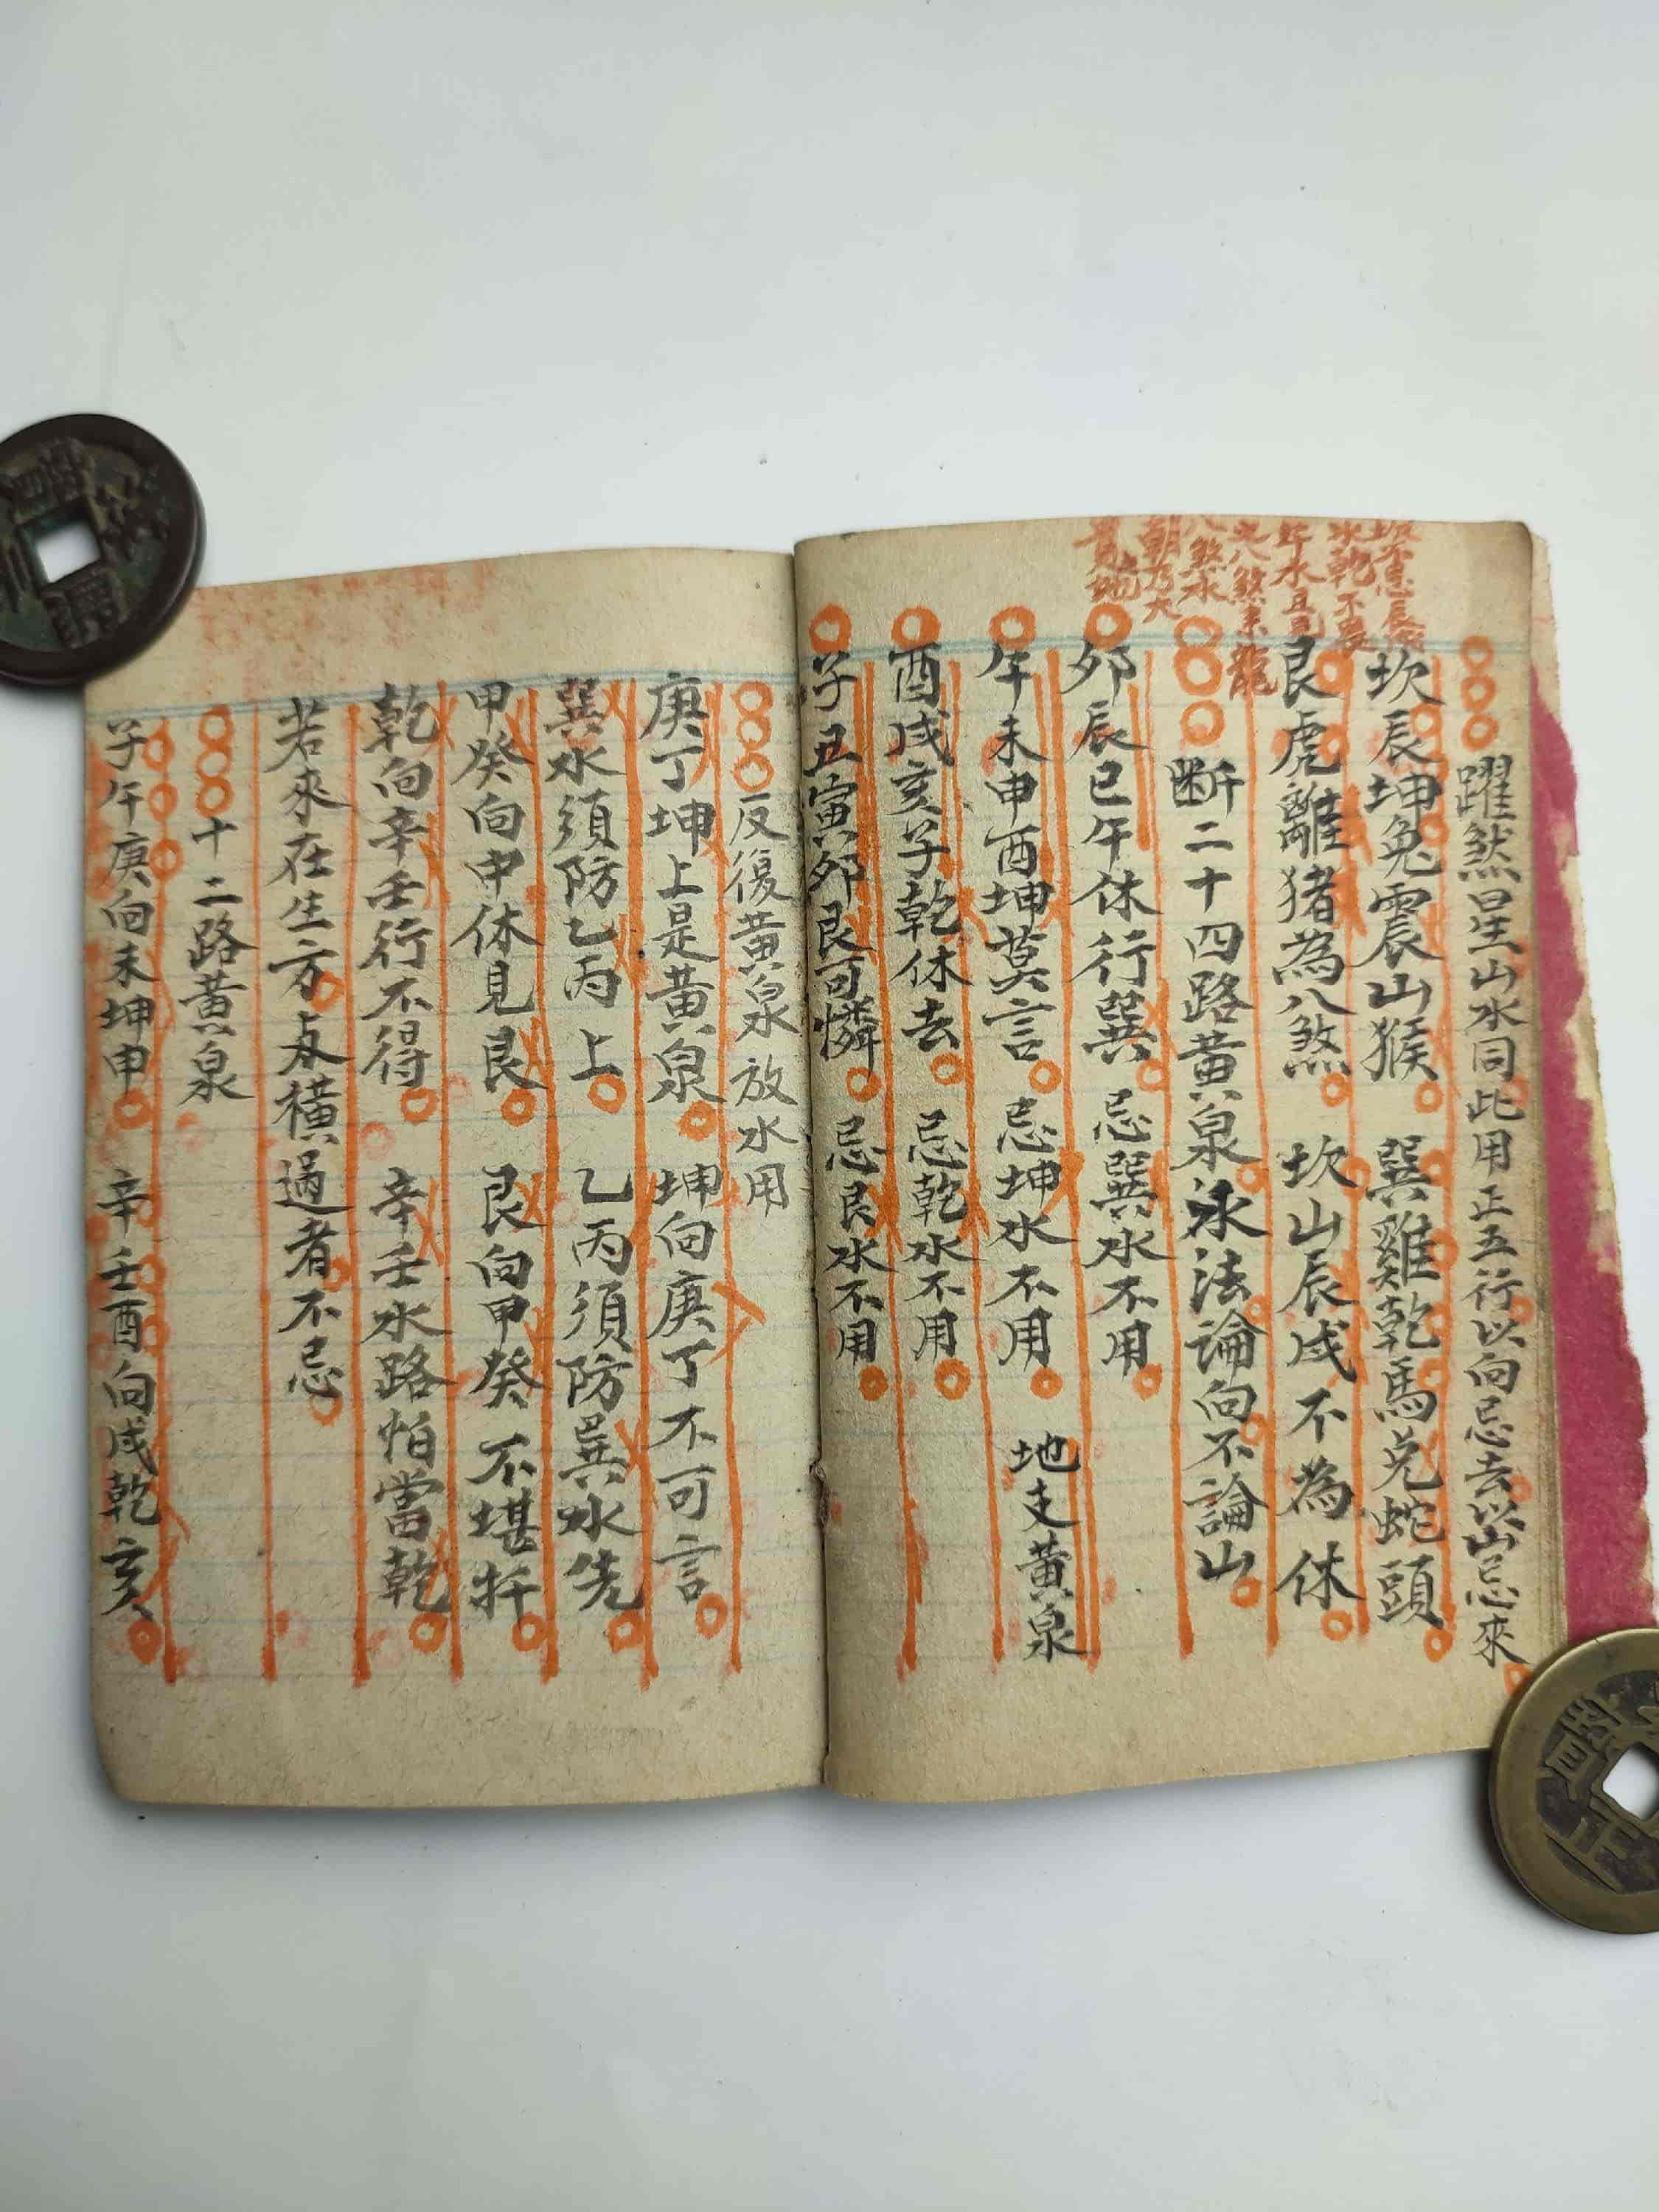 躍煞星山水同此用正五行以向忌去以山忌來
坎辰坤兔震山猴　巽雞乾馬兌蛇頭
艮虎離猪為八煞　坎山辰戍不為休
断二十四路黃泉泳法論向不論山
夘辰巳午休行巽　忌巽水不用
午未申酉坤莫言　忌坤水不用　地支黃泉
酉戍亥子乾休去　忌乾水不用
子丑寅夘艮可憐　忌艮水不用
反復黃泉放水用
庚丁坤上是黃泉　坤向庚丁不可言
巽水須防乙丙上　乙丙須防巽水先
甲癸向中休見艮　艮向甲癸不堪扦
乾向辛壬行不得　辛壬水路怕當乾
若來在生方及橫過者不忌
十二路黃泉
子午庚向未坤申　辛壬酉向戍乾亥